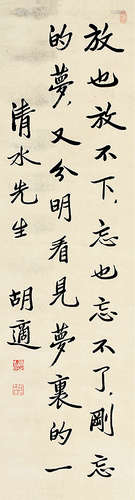 放也放不下,忘也忘不了,剛忘
的夢,又分明看見夢裏的一
清水先生
胡適